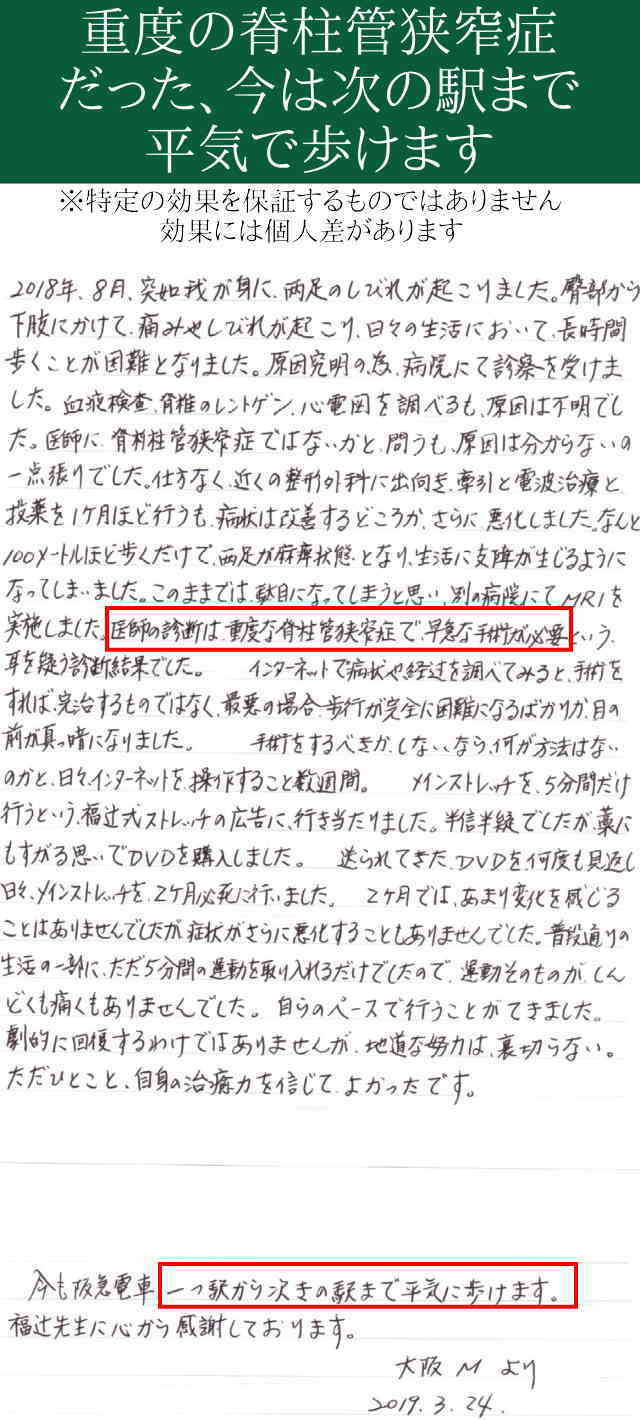 重度の脊柱管狭窄症
だった、今は次の駅まで
平気で歩けます
※特定の効果を保証するものではありません
効果には個人差があります
2018年、8月、突如我が身に、両足のしびれが起こりました。臀部から
下肢にかけて、痛みやしびれが起こり、日々の生活において、長時間
歩くことが困難となりました。原因究明の為、病院にて診察を受けま
した。血液検査、脊椎のレントゲン、心電図を調べるも、原因は不明でし
た。医師に、脊柱管狭窄症ではないかと、問うも、原因は分からないの
一点張りでした。仕方なく、近くの整形外科に出向き、牽引と電波治療と
投薬を1ケ月ほど行うも、病状は改善するどころか、さらに、悪化しました。なんと
100メートルほど歩くだけで、両足が麻痺状態となり、生活に支障が生じるように
なってしまいました。このままでは、駄目になってしまうと思い、別の病院にてMRIを
実施しました。医師の診断は、重度な脊柱管狭窄症で、早急な手術が必要という、
耳を疑う診断結果でした。 インターネットで病状や経過を調べてみると、手術を
すれば、完治するものではなく、最悪の場合、歩行が完全に困難になるばかりか、目の
前が真っ暗になりました。 手術をするべきか、しないなら、何か方法はない
のかと、日々、インターネットを、操作すること数週間。 メインストレッチを、5分間だけ
行うという、福辻式ストレッチの広告に、行き当たりました。半信半疑でしたが、藁に
もすがる思いでDVDを購入しました。 送られてきた、DVDを、何度も見返し
日々、メインストレッチを、2ケ月必死に行いました。 2ケ月では、あまり変化を感じる
ことはありませんでしたが、症状がさらに悪化することもありませんでした。普段通りの
生活の一部に、ただ5分間の運動を取り入れるだけでしたので、運動そのものが、しん
どくも痛くもありませんでした。自らのペースで行うことができました。
劇的に回復するわけではありませんが、地道な努力は、裏切らない。
ただひとこと、自身の治癒力を信じて、よかったです。
今も阪急電車 一つ駅から次きの駅まで平気に歩けます。
福辻先生に心から感謝しております。
大阪 M より
2019.3.24.